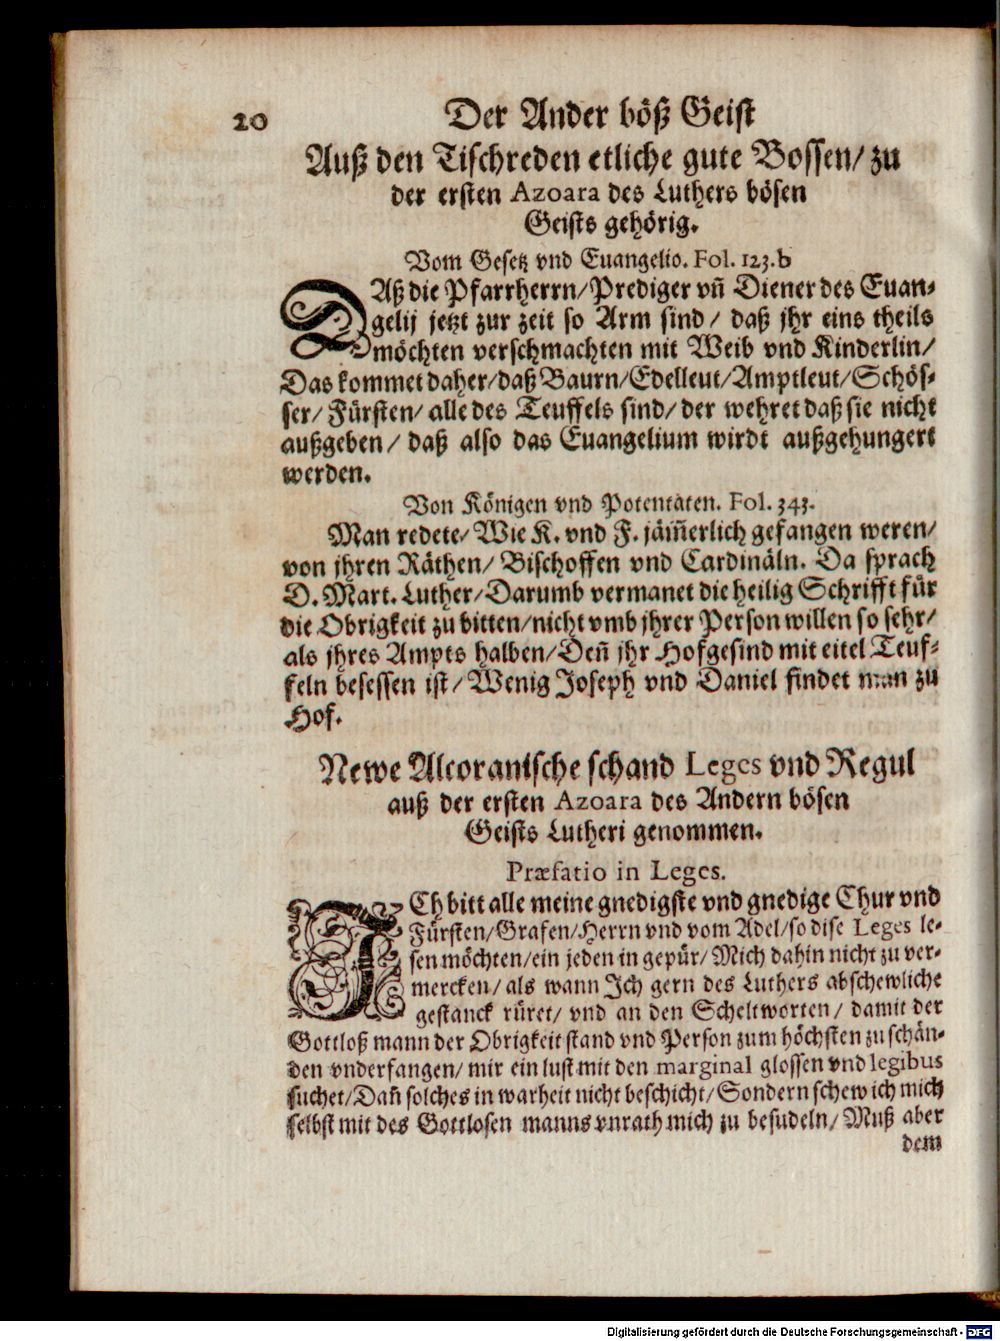 20 Der Ander böß Geist
Auß den Tischreden etliche gute Bossen/ zu
der ersten Azoara des Luthers bösen
Geists gehörig.
Vom Gesetz vnd Euangelio. Fol. 123.b
DAß die Pfarrherrn/Prediger vñ Diener des Euan-
gelij jetzt zur zeit so Arm sind/ daß jhr eins theils
möchten verschmachten mit Weib vnd Kinderlin/
Das kommet daher/daß Baurn/Edelleut/Amptleut/Schös-
ser/ Fürsten/ alle des Teuffels sind/ der wehret daß sie nicht
außgeben/ daß also das Euangelium wirdt außgehungert
werden.
Von Königen vnd Potentaten. Fol. 343.
Man redete/ Wie K. vnd F. jäm̃erlich gefangen weren/
von jhren Räthen/ Bischoffen vnd Cardinäln. Da sprach
D. Mart. Luther/Darumb vermanet die heilig Schrifft für
die Obrigkeit zu bitten/nicht vmb jhrer Person willen so sehr/
als jhres Ampts halben/Deñ jhr Hofgesind mit eitel Teuf-
feln besessen ist/ Wenig Joseph vnd Daniel findet man zu
Hof.
Newe Alcoranische schand Leges vnd Regul
auß der ersten Azoara des Andern bösen
Geists Lutheri genommen.
Præfatio in Leges.
JCh bitt alle meine gnedigste vnd gnedige Chur vnd
Fürsten/Grafen/Herrn vnd vom Adel/so dise Leges le-
sen möchten/ein jeden in gepür/Mich dahin nicht zu ver-
mercken/als wann Jch gern des Luthers abschewliche
gestanck rüret/ vnd an den Scheltworten/ damit der
Gottloß mann der Obrigkeit stand vnd Person zum höchsten zu schän-
den vnderfangen/ mir ein lust mit den marginal glossen vnd legibus
suchet/Dañ solches in warheit nicht beschicht/Sondern schew ich mich
selbst mit des Gottlosen manns vnrath mich zu besudeln/Muß aber
dem
Digitalisierung gefördert durch die Deutsche Forschungsgemeinschaft - DFG